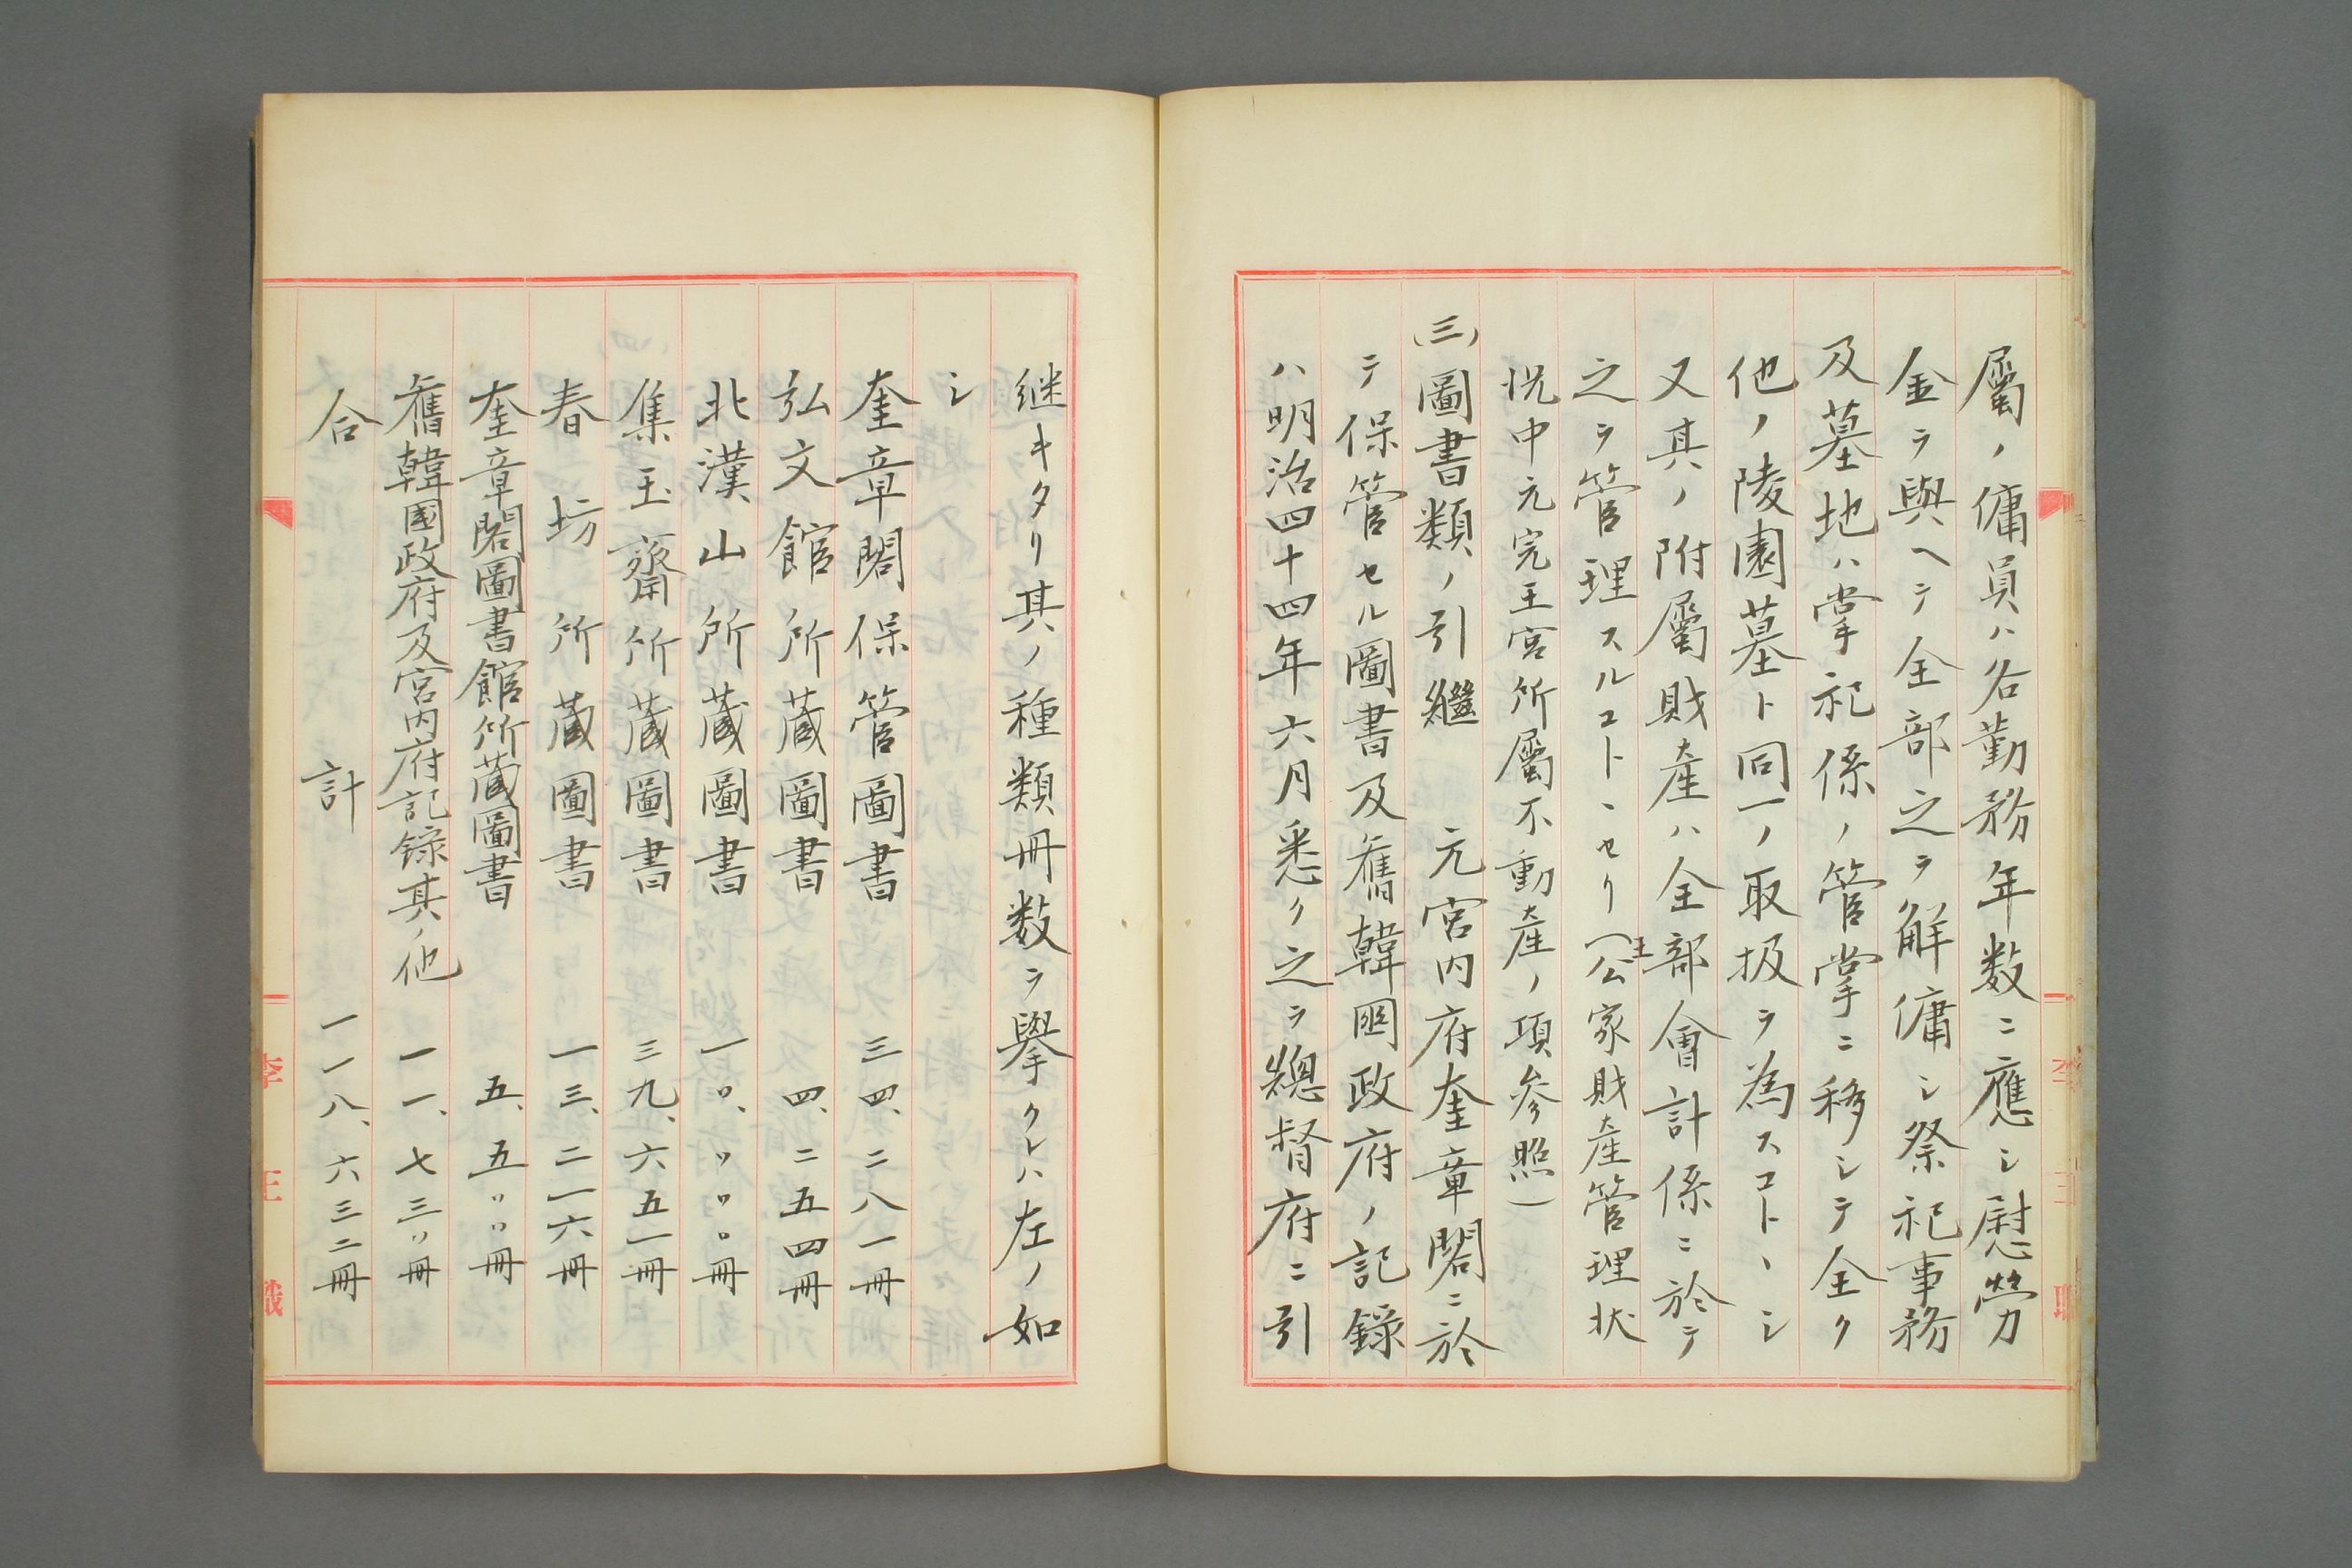 屬ノ傭員ハ各勤務年数ニ應シ慰勞
金ヲ與ヘテ全部之ヲ解傭シ祭祀事務
及墓地ハ掌祀係ノ管掌ニ移シテ全ク
他ノ陵園墓ト同一ノ取扱ヲ為スコトヽシ
又其ノ附屬財產ハ全部會計係ニ於テ
之ヲ管理スルコトヽセリ（王公家財產管理状
況中元完王宮所屬不動產ノ項參照）
(三)圖書類ノ引繼　元宮内府奎章閣ニ於
テ保管セル圖書及舊韓國政府ノ記錄
ハ明治四十四年六月悉ク之ヲ總督府ニ引
継キタリ其ノ種類冊数ヲ擧クレハ左ノ如
シ
奎章閣保管圖書　三四、二八一冊
弘文館所蔵圖書　四、二五四冊
北漢山所蔵圖書　一〇、〇〇〇冊
集玉齋所蔵圖書　三九、六五一冊
春坊所蔵圖書　一三、二一六冊
奎章閣圖書館所蔵圖書　五、五〇〇冊
舊韓國政府及宮内府記録其ノ他　一一、七三〇冊
合計　一一八、六三二冊
李王職